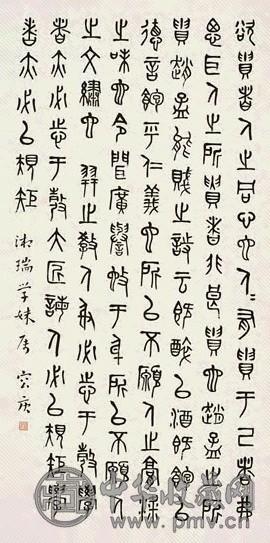 欲貴者人之同心也人=有貴于己者弗
思耳人之所貴者非良貴也趙孟之所
貴趙孟能賤之詩云既醉以酒既飽以
德言飽乎仁義也所以不願人之膏粱
之味也令聞廣譽施于身所以不願人
之文繡也 羿之教人射必志于彀學
者亦必志于彀大匠誨人必以規矩學
者亦必以規矩 湘瑞学妹属
中华收藏网
www.pmv.cn